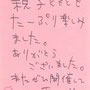 親子ともども
たーっぷり楽しみ
ました。
ありがとう
ございました。
またぜひ開催して